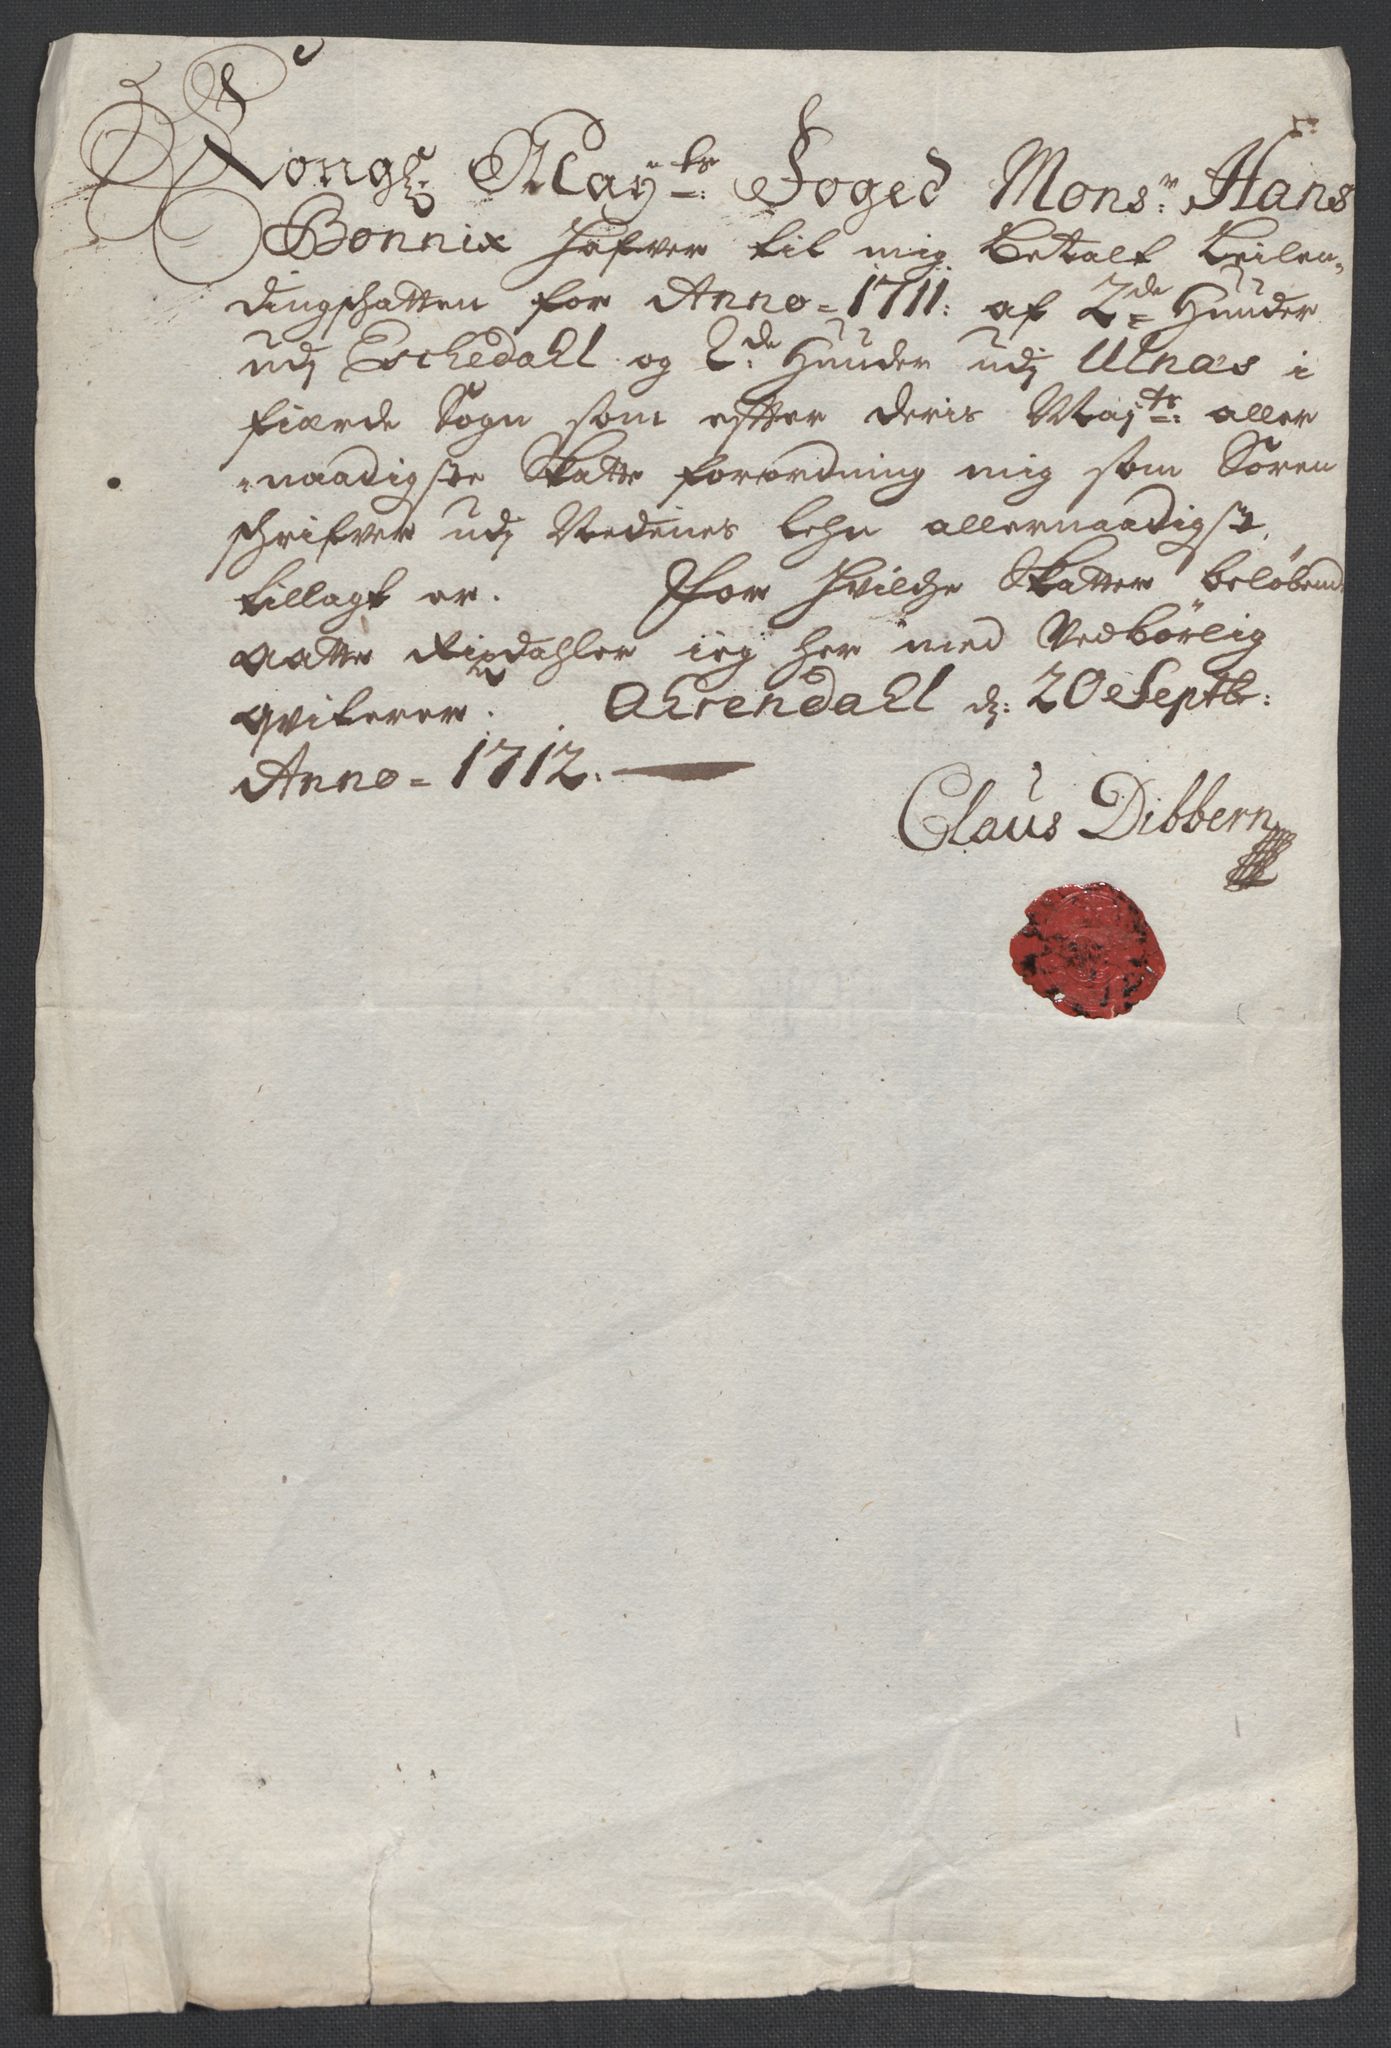 Kongl: Maÿts: Foged Monsr: Hans
Bonnix hafver til mig betalt Leilen-
dingschatten for Anno=1711: af 2de Huuder
udj Eschedahl og 2de Huuder udj Ulnæs i
fiærde Sogn som efter deris Maÿts: aller
-naadigste Skatte forordning mig som Soren
schrifver udj Nedenes Lehn allernaadigst
tillagt er. For hvilche Skatter beløbend
aatte Rixdahler ieg her med Vedbörlig
qviterer. Ahrendahl d: 20 Septbr:
Anno=1712.
Claus Dibbern